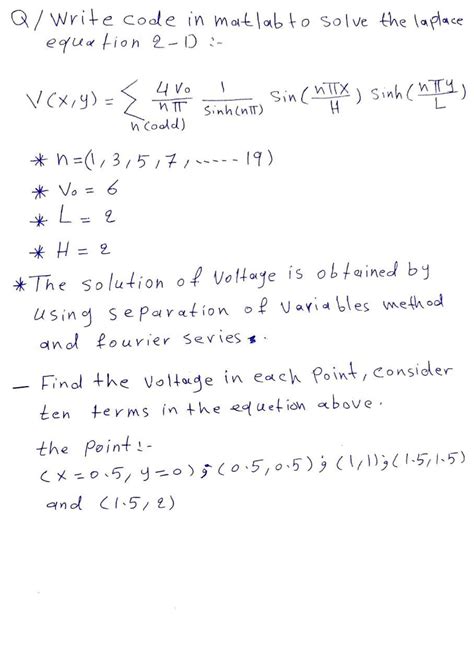 Q/ Write code in matlab to solve the laplace
equation 2-D :-
V(x,y) = ∑ n(odd) 4V₀/nπ 1/Sinh(nπ) Sin(nπx/H) Sinh(nπy/L)
* n=(1,3,5,7,.....19)
* V₀ = 6
* L = 2
* H = 2
* The solution of Voltage is obtained by
using separation of variables method
and fourier series.
- Find the voltage in each Point, consider
ten terms in the equetion above.
the point :-
(x=0.5, y=0) ; (0.5, 0.5) ; (1,1) ; (1.5,1.5)
and (1.5, 2)